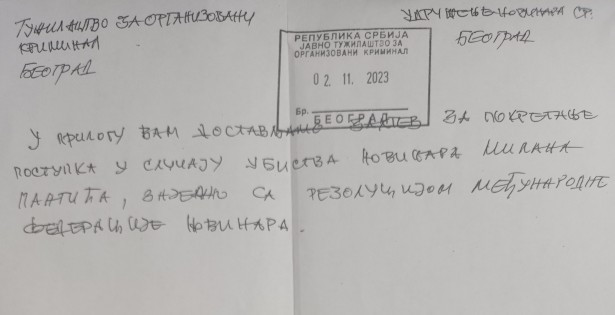 ТУЖИЛАШТВО ЗА ОРГАНИЗОВАНИ
КРИМИНАЛ
БЕОГРАД
УДРУЖЕЊЕ НОВИНАРА СР.
БЕОГРАД
РЕПУБЛИКА СРБИЈА
ЈАВНО ТУЖИЛАШТВО ЗА
ОРГАНИЗОВАНИ КРИМИНАЛ
02. 11. 2023
Бр.
БЕОГРАД
У ПРИЛОГУ ВАМ ДОСТАВЉАМО ЗАХТЕВ ЗА ПОКРЕТАЊЕ
ПОСТУПКА У СЛУЧАЈУ УБИСТВА НОВИНАРА МИЛАНА
ПАНТИЋА, ЗАЈЕДНО СА РЕЗОЛУЦИЈОМ МЕЂУНАРОДНЕ
ФЕДЕРАЦИЈЕ НОВИНАРА.